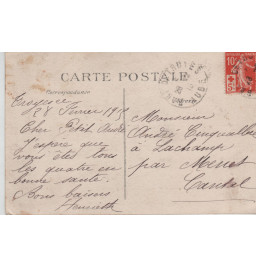 CARTE POSTALE
Correspondance
28 Février 1915
Cher Petit André
J'espère que
vous êtes tous
les quatre en
bonne santé.
Bons baisers
Henriette
Monsieur
André
à Lachamp
par Menet
Cantal
10